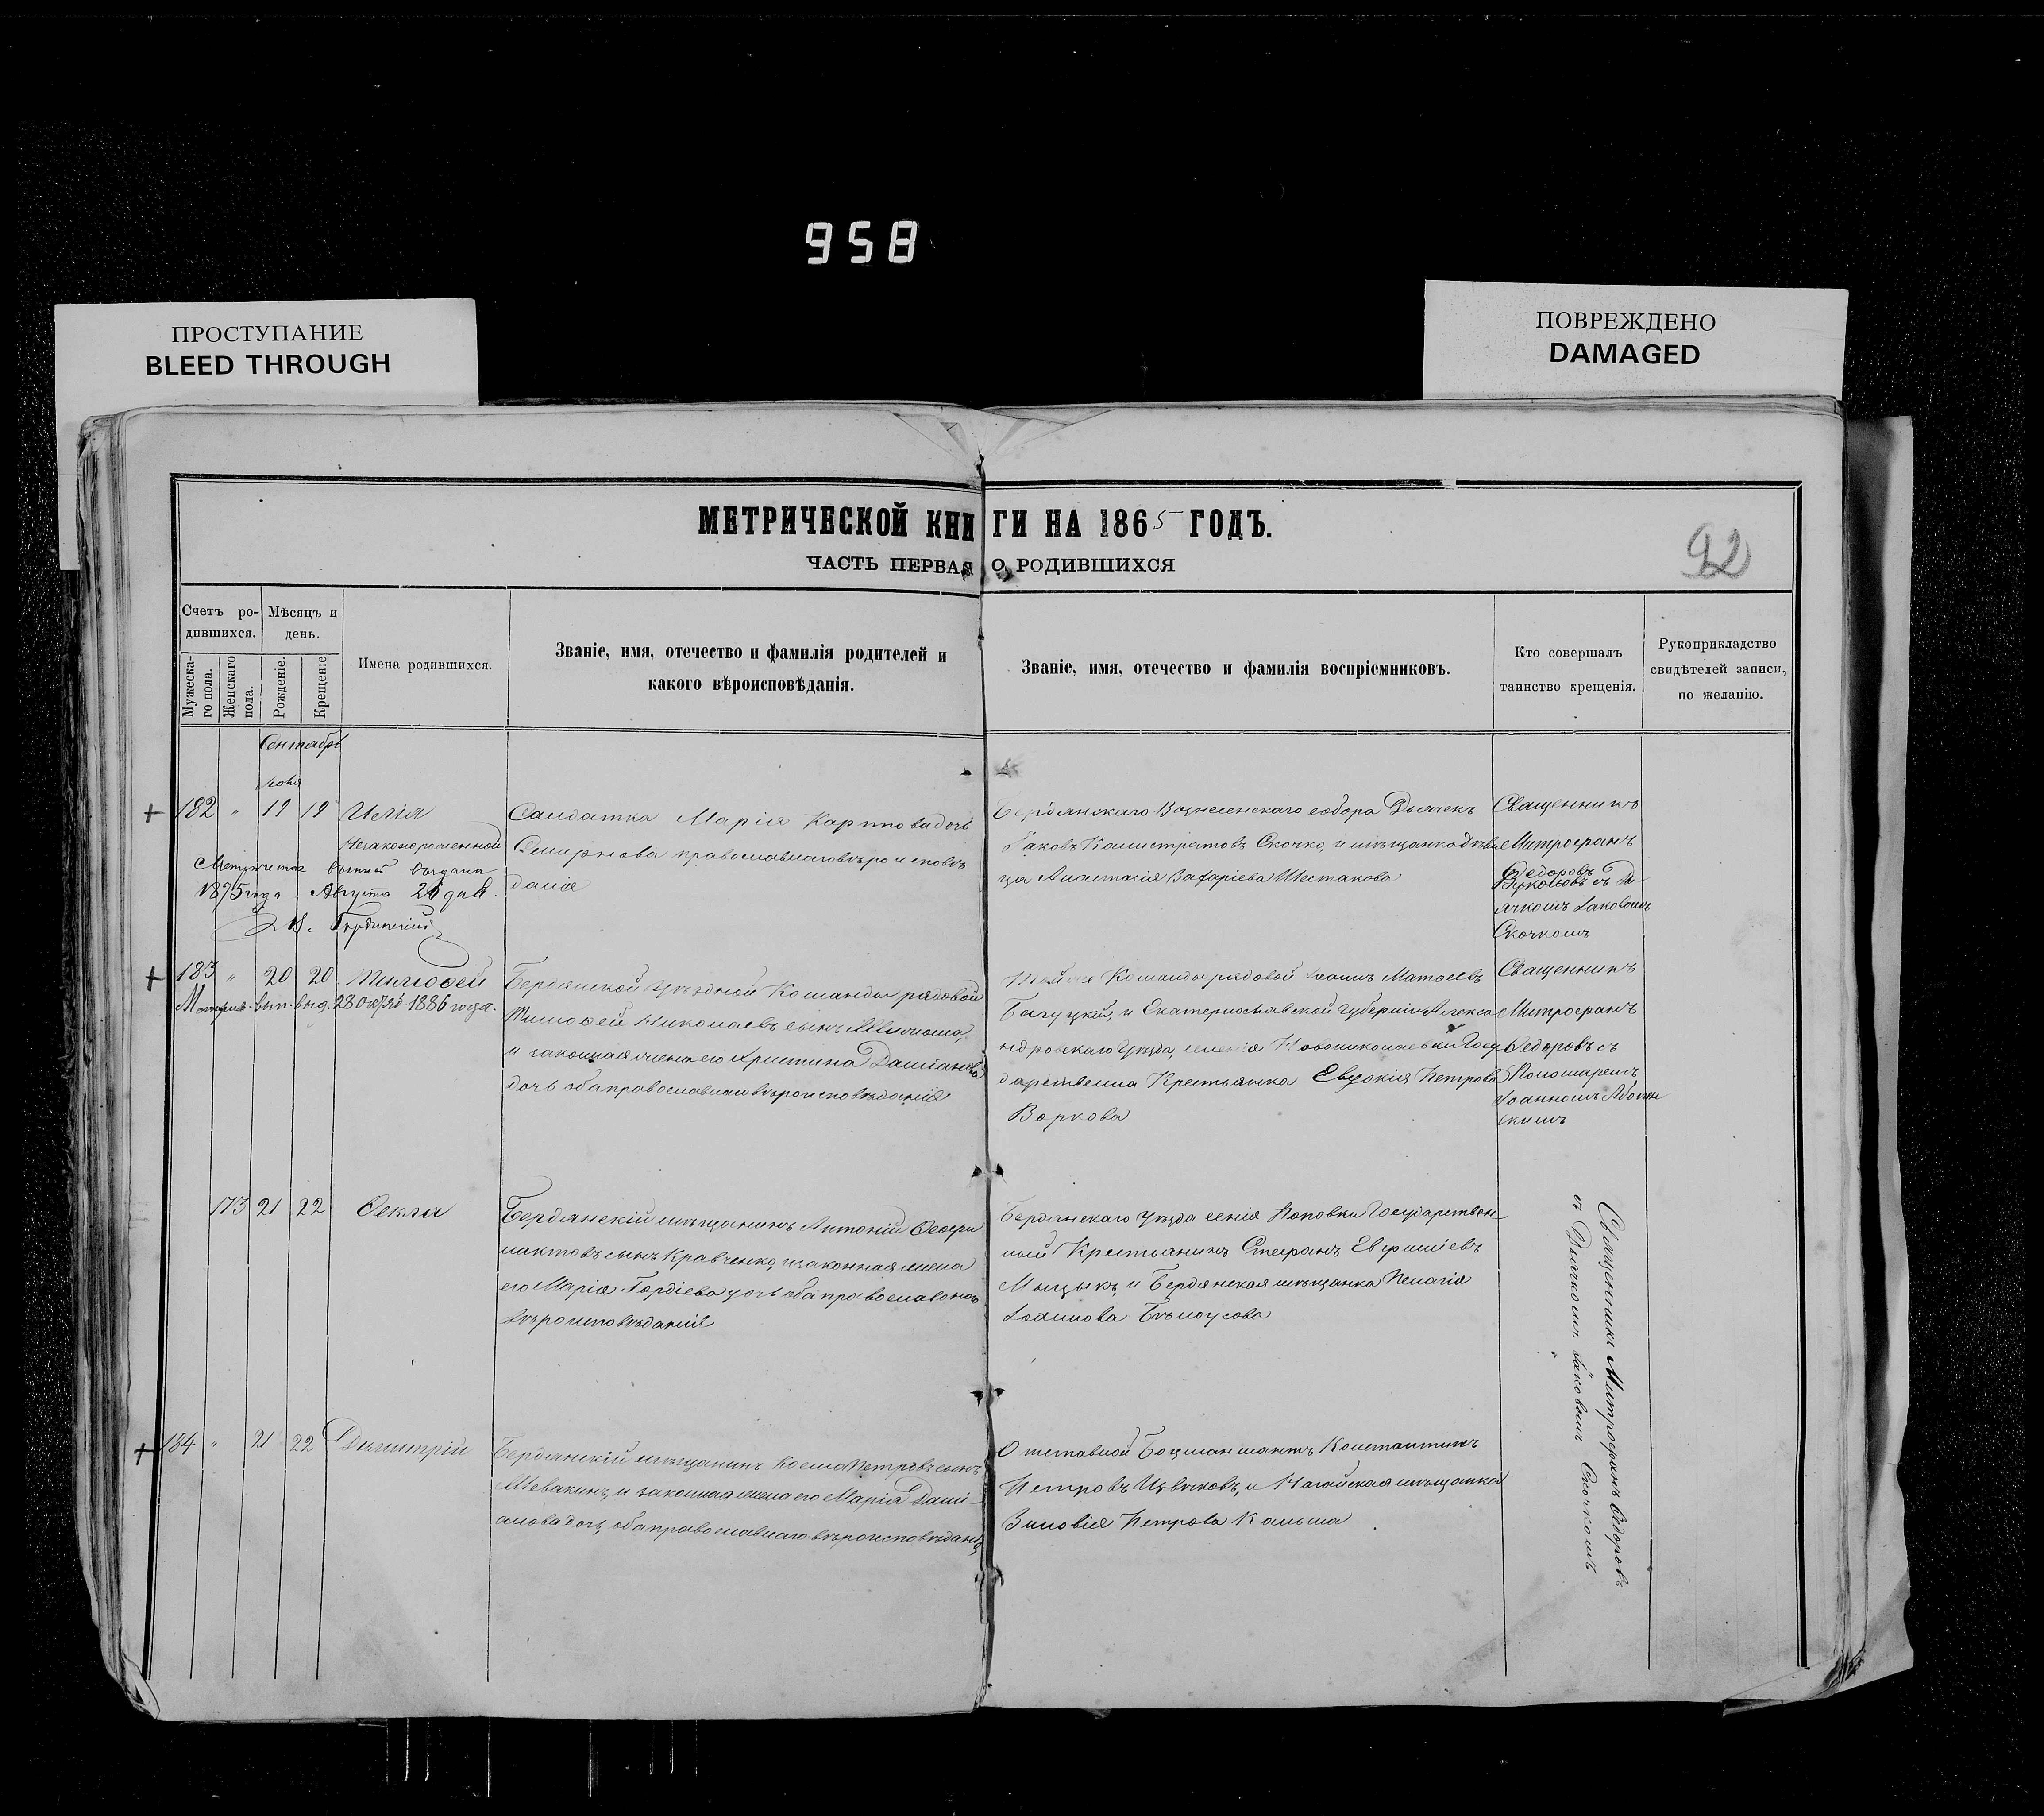 958
ПРОСТУПАНИЕ
BLEED THROUGH
ПОВРЕЖДЕНО
DAMAGED
МЕТРИЧЕСКОЙ КНИГИ НА 1865 ГОДЪ.
ЧАСТЬ ПЕРВАЯ О РОДИВШИХСЯ
92
Счетъ ро-
дившихся.
Мужеска-
го пола.
Женскаго
пола.
Мѣсяцъ и
день.
Рожденіе.
Крещеніе
Имена родившихся.
Званіе, имя, отечество и фамилія родителей и
какого вѣроисповѣданія.
Званіе, имя, отечество и фамилія воспріемниковъ.
Кто совершалъ
таинство крещенія.
Рукоприкладство
свидѣтелей записи,
по желанію.
Сентябрь
182 " 19 19 Илія
Незаконорожденной
Солдатка Марія Карпова дочь
Смирнова православнаго вѣроисповѣ
данія
Бердянскаго Вознесенскаго собора Дьячекъ
Іаковъ Калистратовъ Скочко, и мѣщанка дѣви
ца Анастасія Захаріева Шестакова
Священникъ
Митрофанъ
Федоровъ
съ Дь-
ячкомъ Іаковомъ
Скочкомъ
выдана
1875 года Августа 26 дня.
183 " 20 20 Тимофей
вып. выд. 28 1886 года.
Бердянской Уѣздной Команды рядовой
Тимофей Николаевъ сынъ
и законная жена его Христина Даміанова
дочь оба православнаго вѣроисповѣданія
Той же Команды рядовой Іоаннъ Матфеевъ
Багуцкій, и Екатеринославской губерніи Алекса
ндровскаго Уѣзда, селенія Новониколаевки Госу
дарственна Крестьянка Евдокія Петрова
Воркова
Священникъ
Митрофанъ
Федоровъ съ
Пономаремъ
Іоанномъ
скимъ
173 21 22 Фекла
Бердянскій мѣщанинъ Антоній Феофи
лактовъ сынъ Кравченко, и законная жена
его Марія Гордіева дочь оба православнаго
вѣроисповѣданія
Бердянскаго Уѣзда селенія Поповки Государствен-
ный Крестьянинъ Стефанъ Евфиміевъ
Мыцыкъ, и Бердянская мѣщанка Пелагія
Іоаннова Бѣлоусова
Священникъ Митрофанъ Федоровъ
съ Дьячкомъ Іаковымъ Скочкомъ
184 " 21 22 Димитрій
Бердянскій мѣщанинъ Косма Петровъ сынъ
Шевакинъ, и законная жена его Марія Дамі-
анова дочь, оба православнаго вѣроисповѣданія
Отставной Боцманматъ Константинъ
Петровъ Цвѣтковъ, и Ногайская мѣщанка
Зиновія Петрова Кальма